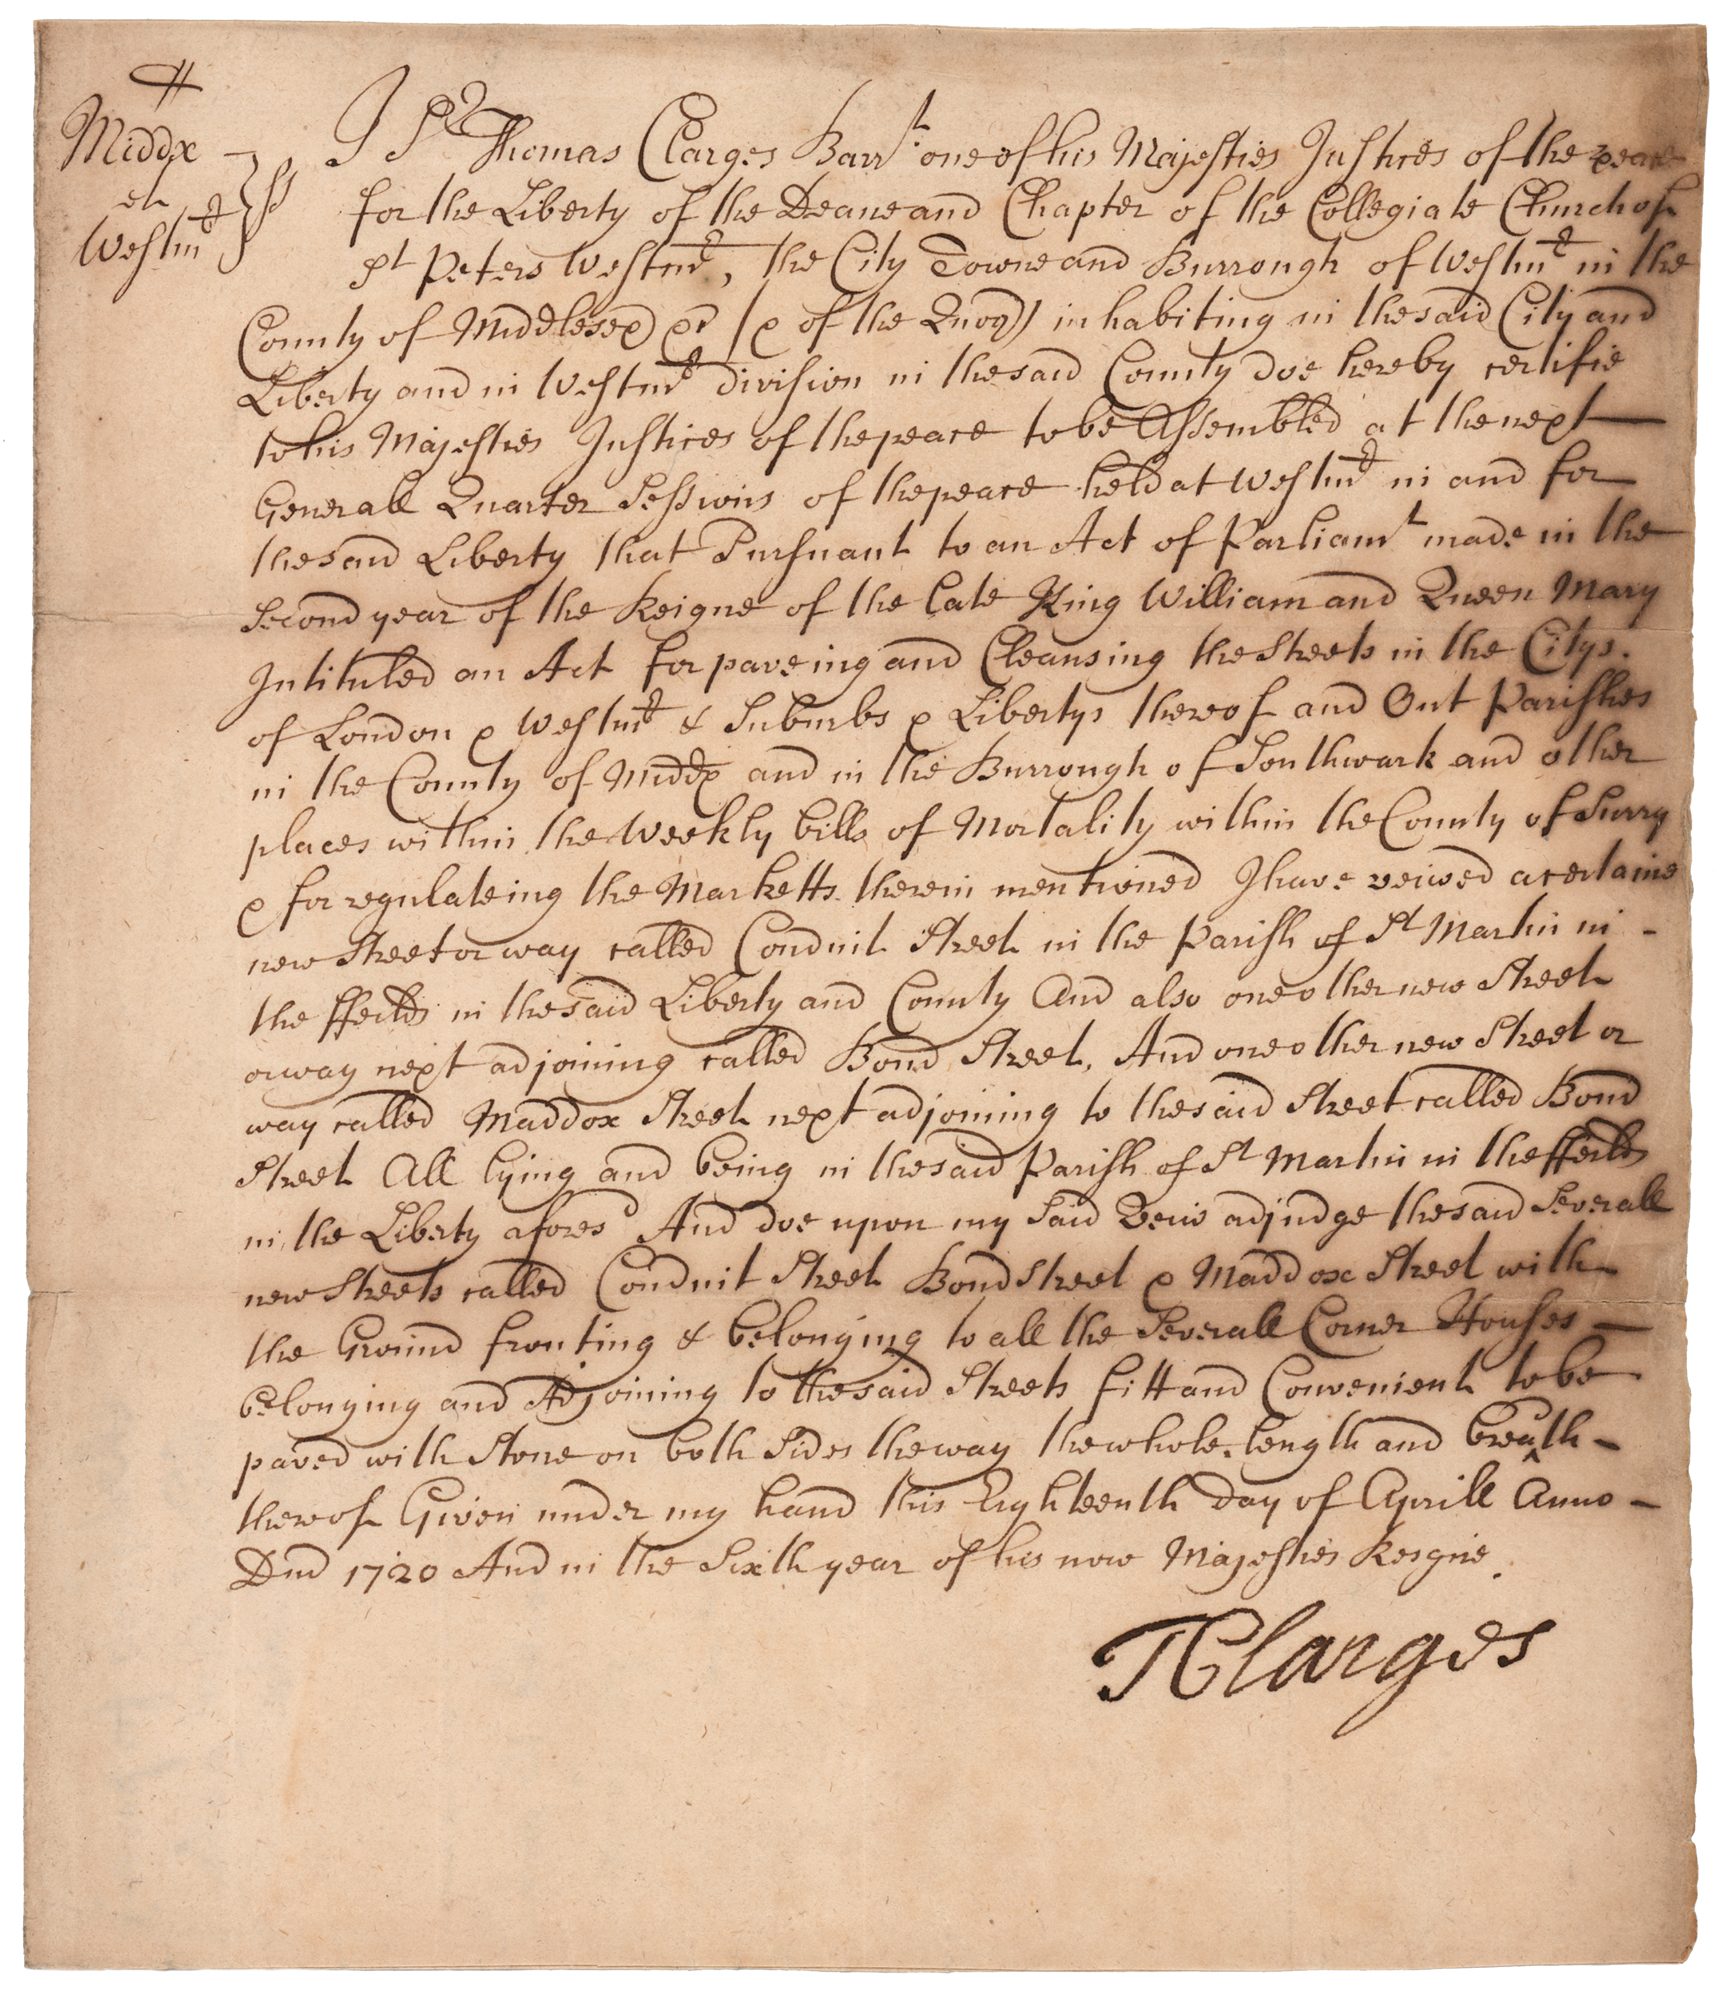 Middx
et
Westmr
ss
I Sr Thomas Clarges Barrt. one of his Majesties Justices of the peace
for the Liberty of the Deane and Chapter of the Collegiate Church of
St Peters Westmr, the City Towne and Burrough of Westmr in the
County of Middlesex (& of the Quor) inhabiting in the said City and
Liberty and in Westmr division in the said County doe hereby certifie
to his Majesties Justices of the peace to be Assembled at the next
Generall Quarter Sessions of the peace held at Westmr in and for
the said Liberty that Pursuant to an Act of Parliamt made in the
Second year of the Reigne of the Late King William and Queen Mary
Intituled an Act for paveing and Cleansing the Streets in the Citys.
of London & Westmr & Suburbs & Libertys thereof and Out Parishes
in the County of Middx and in the Burrough of Southwark and other
places within the Weekly bills of Mortality within the County of Surry
& for regulateing the Marketts therein mentioned I have veiwed a certaine
new Street or way called Conduit Street in the Parish of St Martin in -
the ffeilds in the said Liberty and County And also one other new Street
or way next adjoining called Bond Street, And one other new Street or
way called Maddox Street next adjoining to the said Street called Bond
Street All lying and being in the said Parish of St Martin in the ffeilds
in the Liberty aforesd And doe upon my Said Veiw adjudge the said Severall
new Streets called Conduit Street Bond Street & Maddox Street with
the Ground fronting & belonging to all the Severall Corner Houses -
belonging and Adjoining to the said Streets fitt and Convenient to be
paved with Stone on both Sides the way the whole length and breadth -
thereof Given under my hand this Eighteenth Day of Aprill Anno -
Dnd 1720 And in the Sixth year of his now Majesties Reigne.
TClarges